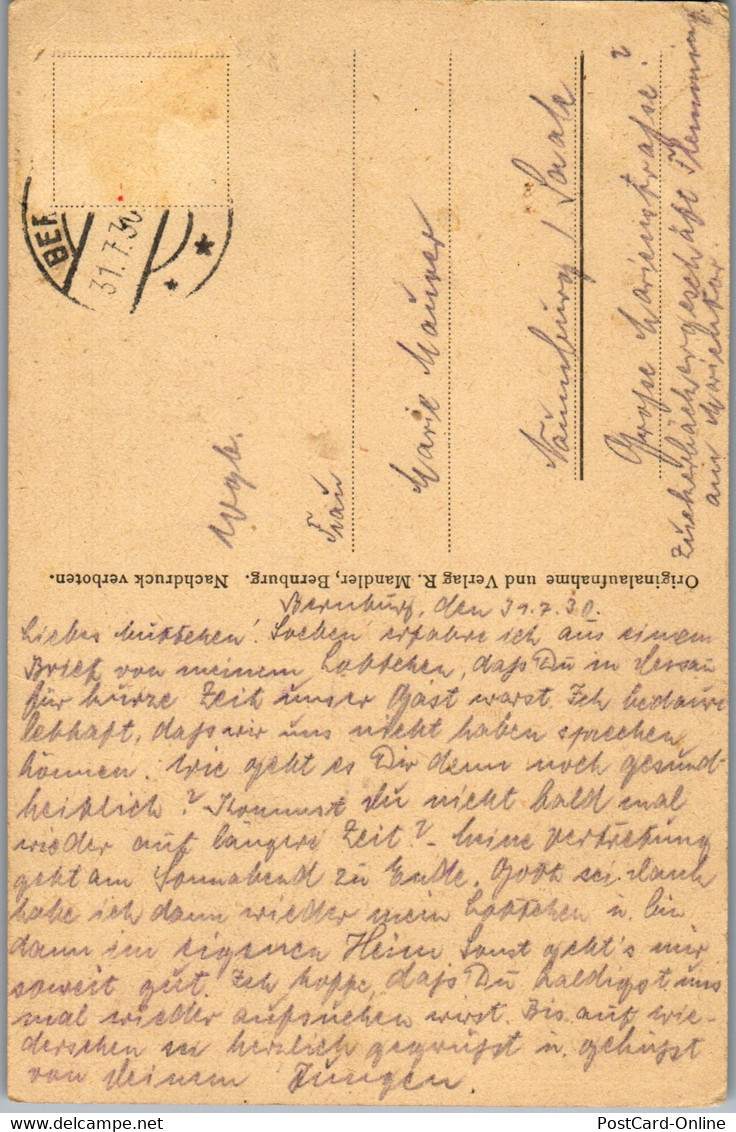 BER
31.7.30
Wgb.
Frau
Marie Maurer
Naumburg / Saale
Große Marienstraße ?
Zuckerbäckergeschäft Flemming
am Marientor.
Originalaufnahme und Verlag R. Mandler, Bernburg. Nachdruck verboten.
Bernburg, den 31.7.30.
Liebes Muttchen! Soeben erfahre ich aus einem
Brief von meinem Lottchen, daß Du in Dessau
für kurze Zeit unser Gast warst. Ich bedaure
lebhaft, daß wir uns nicht haben sprechen
können. Wie geht es Dir denn noch gesund-
heitlich? Kommst Du nicht bald mal
wieder auf längere Zeit? - Meine Vertretung
geht am Sonnabend zu Ende. Gott sei Dank
habe ich dann wieder mein Lottchen u. bin
dann im eigenen Heim. Sonst geht's mir
soweit gut. Ich hoffe, daß Du baldigst uns
mal wieder aufsuchen wirst. Bis auf wie-
dersehen sei herzlich gegrüßt u. geküßt
von Deinem Jungen.
PostCard-Online
PostCard-Online